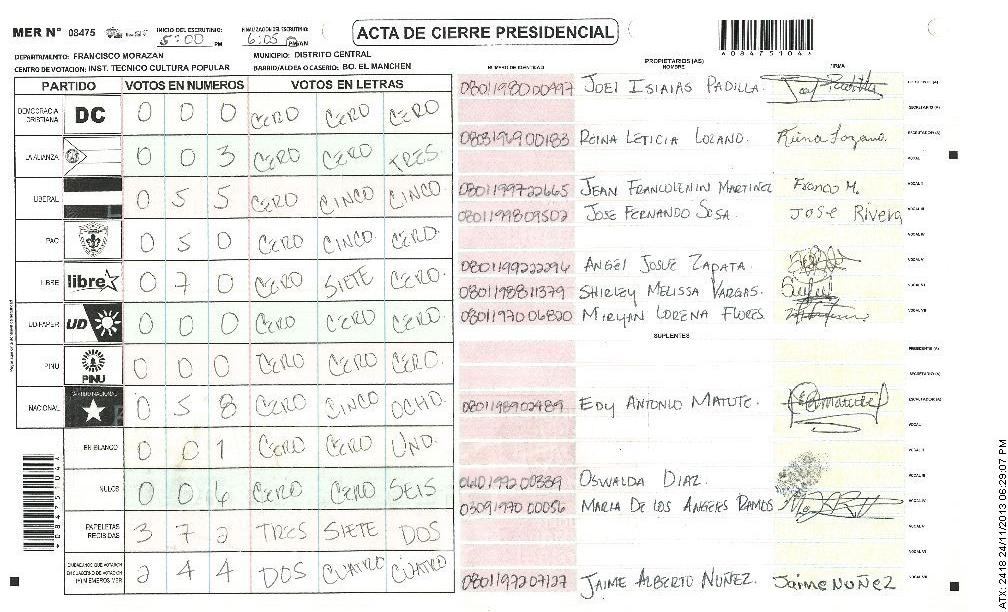 MER Nº 08475
INICIO DEL ESCRUTINIO: 5:00 PM
FINALIZACION DEL ESCRUTINIO: 6:05 PM
ACTA DE CIERRE PRESIDENCIAL
DEPARTAMENTO: FRANCISCO MORAZAN
MUNICIPIO: DISTRITO CENTRAL
CENTRO DE VOTACION: INST. TECNICO CULTURA POPULAR
BARRIO/ALDEA O CASERIO: BO. EL MANCHEN
PARTIDO VOTOS EN NUMEROS VOTOS EN LETRAS
DEMOCRACIA CRISTIANA DC 0 0 0 CERO CERO CERO
LA ALIANZA 0 0 3 CERO CERO TRES
LIBERAL 0 5 5 CERO CINCO CINCO
PAC 0 5 0 CERO CINCO CERO
LIBRE libre 0 7 0 CERO SIETE CERO
UD-FAPER UD 0 0 0 CERO CERO CERO
PINU PINU 0 0 0 CERO CERO CERO
NACIONAL 0 5 8 CERO CINCO OCHO
EN BLANCO 0 0 1 CERO CERO UNO
NULOS 0 0 6 CERO CERO SEIS
PAPELETAS RECIBIDAS 3 7 2 TRES SIETE DOS
CIUDADANOS QUE VOTARON EN CUADERNO DE VOTACION (+) MIEMBROS MER 2 4 4 DOS CUATRO CUATRO
NUMERO DE IDENTIDAD
PROPIETARIOS (AS)
NOMBRE
FIRMA
0801198000997 JOEL ISIAIAS PADILLA
0803196900183 REINA LETICIA LOZANO. Reina Lozano
0801199722665 JEAN FRANCOLENIN MARTINEZ Franco M.
0801199809507 JOSE FERNANDO SOSA. JOSE Rivera
0801199222296 ANGEL JOSUE ZAPATA.
0801198811379 SHIRLEY MELISSA VARGAS.
0801197006820 MIRYAN LORENA FLORES
SUPLENTES
0801198902489 EDY ANTONIO MATUTE.
0601197200389 OSWALDA DIAZ.
0309197000056 MARIA DE LOS ANGELES RAMOS
0801197207127 JAIME ALBERTO NUÑEZ. Jaime NUÑEZ
ATX-2418 24/11/2013 06:29:07 PM